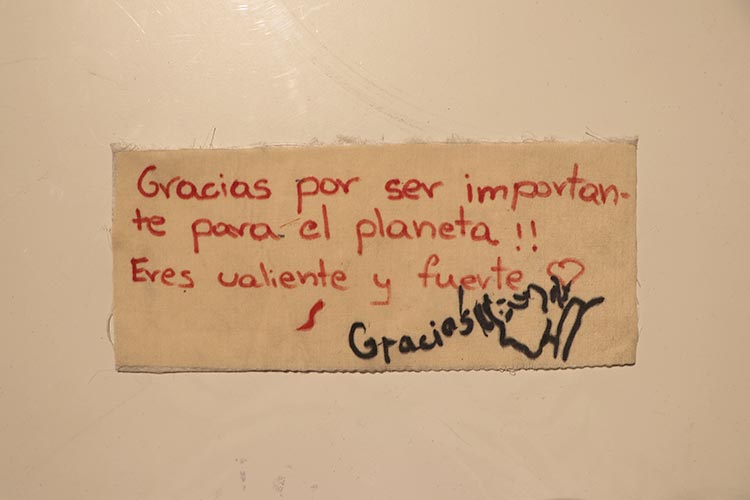 Gracias por ser importan-
te para el planeta !!
Eres valiente y fuerte ♡
Gracias!